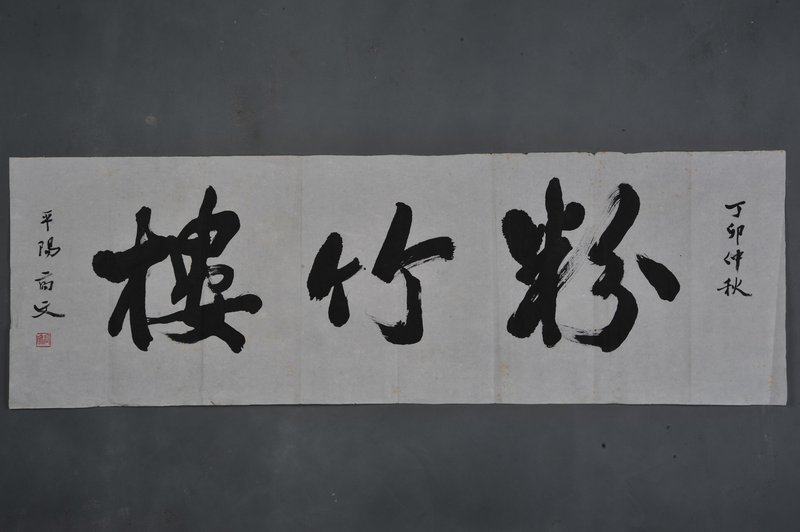 丁卯仲秋
粉竹樓
平陽